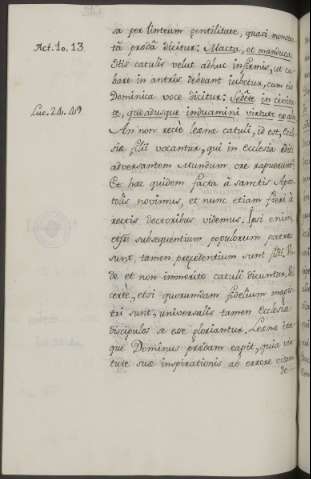 sa per linteum gentilitate, quasi monstra
tâ prædâ dicitur: Macta, et manduca.
Act. 10. 13
Istis catulis velut adhuc infirmis, ut cu
bare in antris debeant iubetur, cum eis
Dominica voce dicitur: Sedete in civita
Luc. 24. 49
te, quoadusque induamini virtute ex alto.
An non recte leænæ catuli, id est, Eccle
siæ filii vocantur, qui in ecclesia Dei
adversantem mundum ore rapuerunt?
Et hæc quidem facta à sanctis Apos
tolis novimus, et nunc etiam fieri à
rectis doctoribus videmus. Ipsi enim,
etsi subsequentium populorum patres
sunt, tamen præcedentium sunt filii. Un
de et non immerito catuli dicuntur. Vel
certè, etsi quorumdam fidelium magis
tri sunt, universalis tamen Ecclesiæ
discipulos se esse gloriantur. Leæna ita
que Dominus prædam capit, quia vir
tute suæ inspirationis ab errore